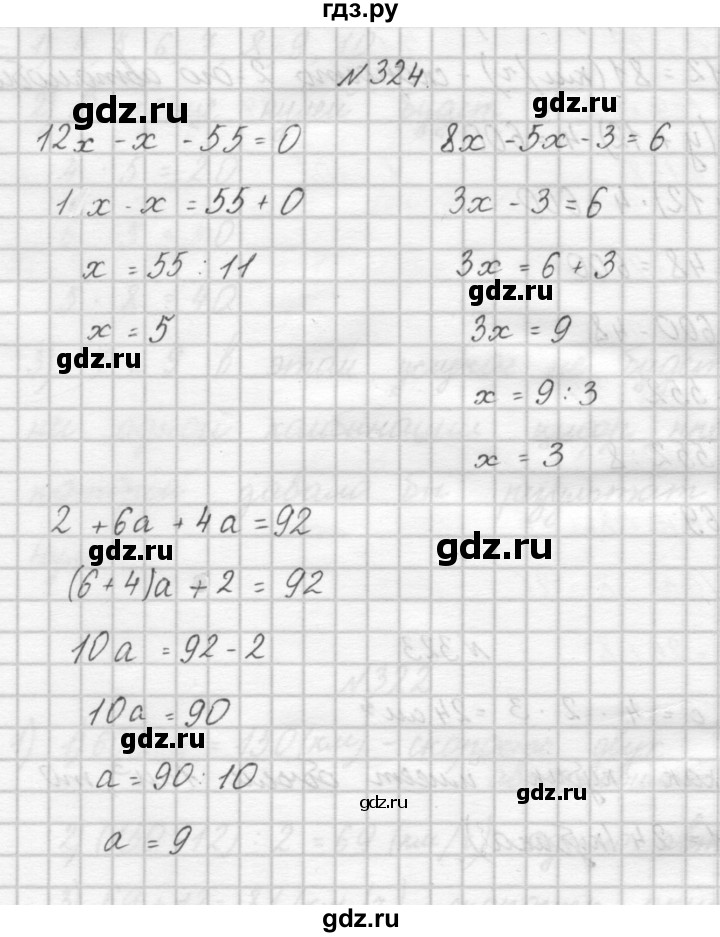 гдз.ру
№324.
gdz.ru
12x - x - 55 = 0
1 x - x = 55 + 0
x = 55 : 11
x = 5
gdz.ru
gdz.ru
8x - 5x - 3 = 6
3x - 3 = 6
3x = 6 + 3
gdz.ru
3x = 9
x = 9 : 3
x = 3
2 + 6a + 4a = 92
gdz.ru
gdz.ru
(6 + 4)a + 2 = 92
10a = 92 - 2
10a = 90
gdz.ru
a = 90 : 10
gdz.ru
gdz.ru
a = 9
gdz.ru